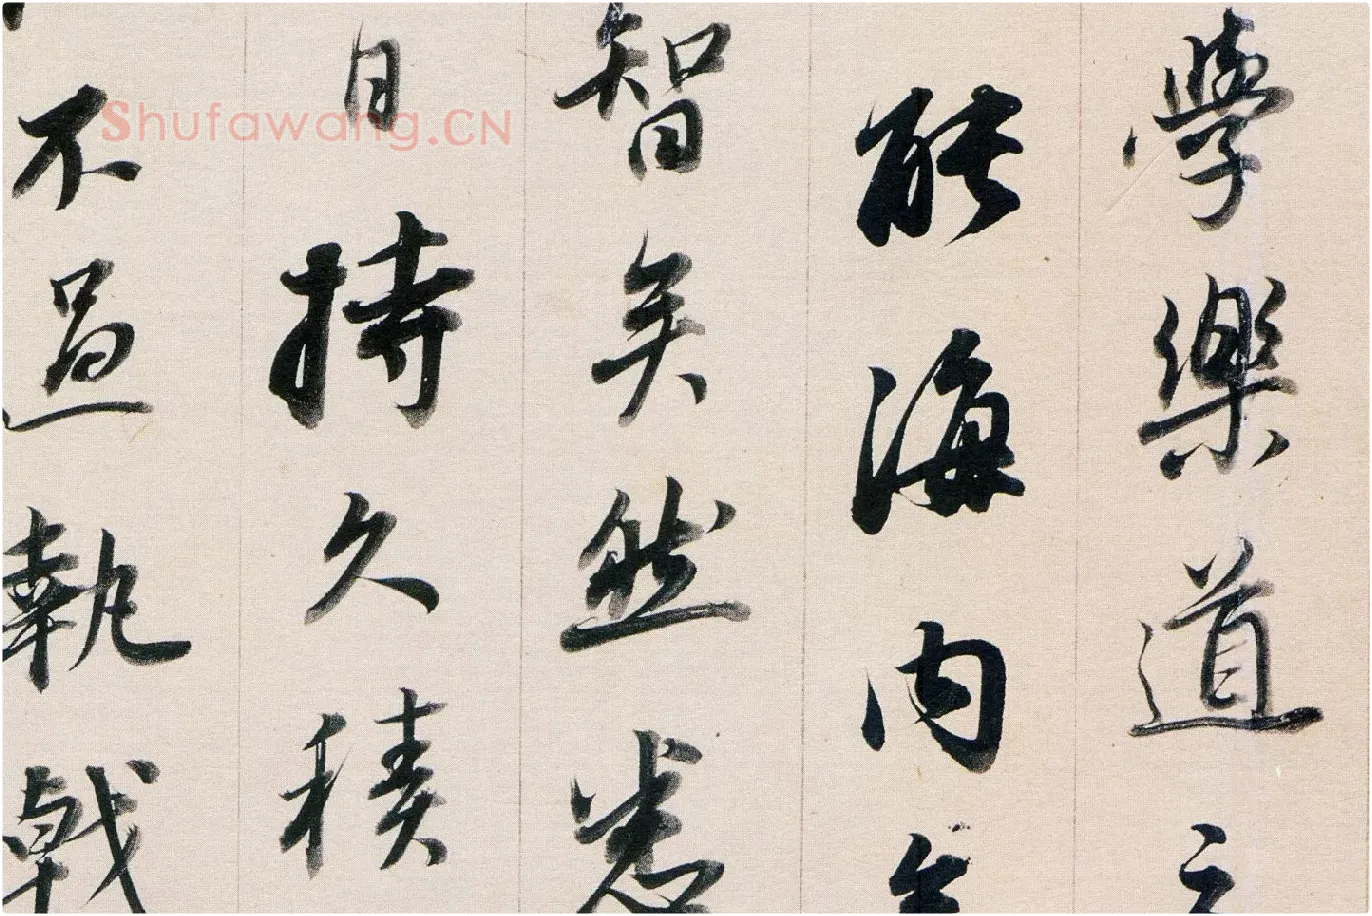 學樂道之
能海内無
智矣然悉
日持久積
不過執戟
Shufawang.CN